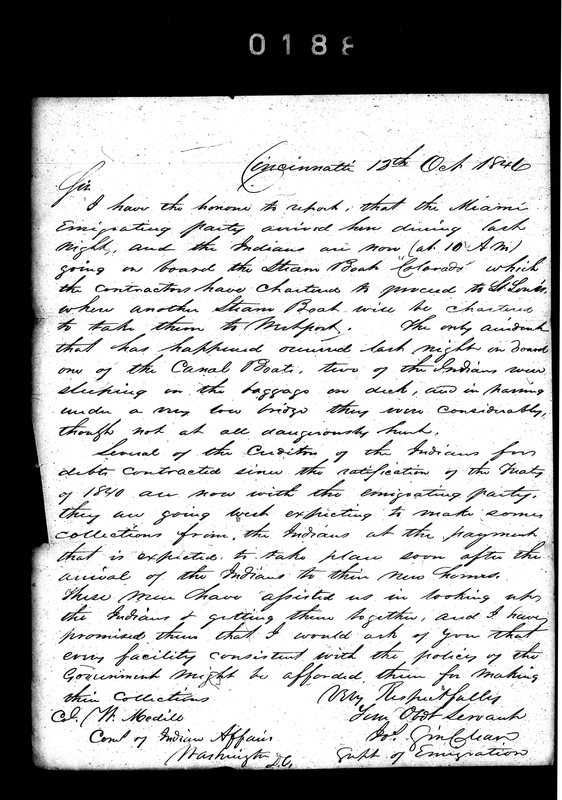 0188
Cincinnati 12th Oct 1846
Sir
I have the honor to report, that the Miami
Emigrating party arrived here during last
night, and the Indians are now (at 10 A.M.)
going on board the Steam Boat "Colorado" which
the contractors have chartered to proceed to St Louis,
where another Steam Boat will be chartered
to take them to Westport. The only accident
that has happened occurred last night on board
one of the Canal Boats, two of the Indians were
sleeping on the baggage on deck, and in passing
under a very low bridge they were considerably,
though not at all dangerously hurt.
Several of the Creditors of the Indians for
debts contracted since the ratification of the Treaty
of 1840 are now with the emigrating party.
they are going west expecting to make some
collections from the Indians at the payment
that is expected to take place soon after the
arrival of the Indians to their new homes.
These men have assisted us in looking up
the Indians & getting them together, and I have
promised them that I would ask of you that
every facility consistent with the policy of the
Government might be afforded them for making
their Collections
Very Respectfully
Your Obdt Servant
Jos. Sinclear
Supt of Emigration
Col. W. Medill
Coml of Indian Affairs
Washington D.C.